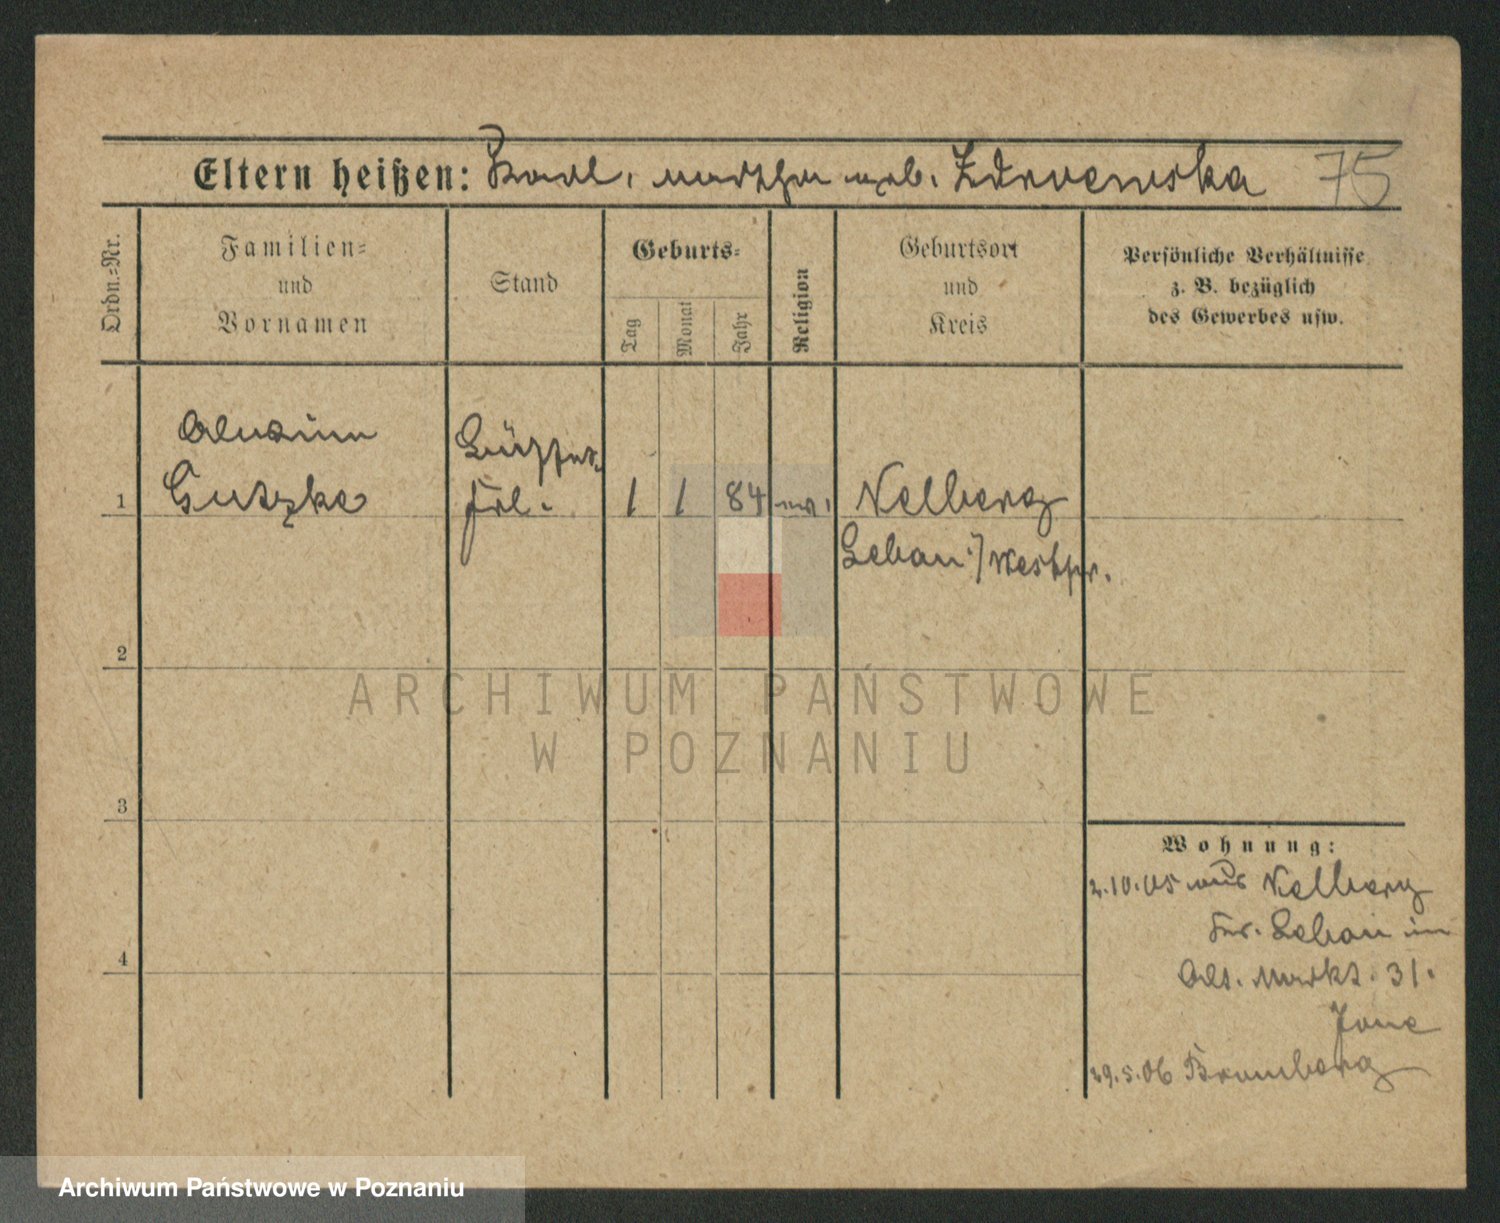 Eltern heißen: Karl, Martha geb. Zdrojewska 75
Ordn.-Nr.
Familien-
und
Vornamen
Stand
Geburts-
Tag
Monat
Jahr
Religion
Geburtsort
und
Kreis
Persönliche Verhältnisse
z. B. bezüglich
des Gewerbes usw.
1
Gutzke
Frl.
1 1 84 ev.
Kelberg
Westpr.
2
3
4
Wohnung:
2.10.05 aus Kelberg
Alt. Markt. 31.
29.5.06 Bromberg
ARCHIWUM PAŃSTWOWE
W POZNANIU
Archiwum Państwowe w Poznaniu